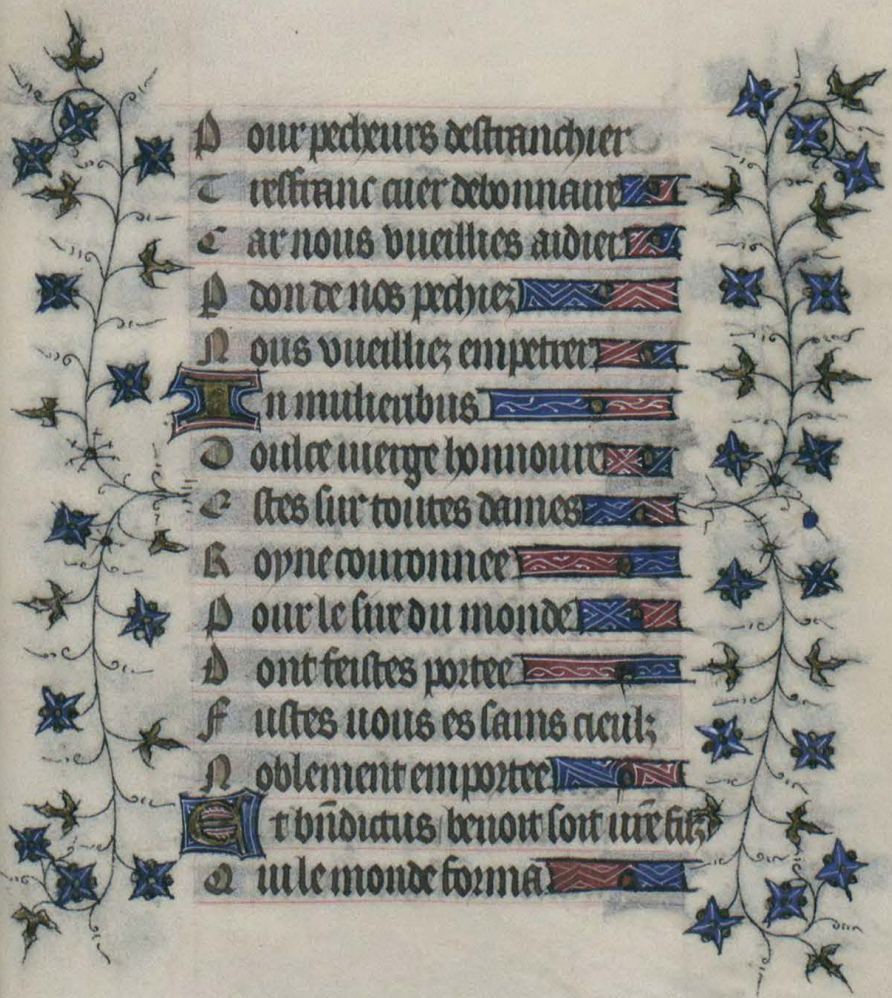 Pour pecheurs destranchier
Tresfranc cuer debonnaire
Car nous vueillies aidier
Pdon de nos pechiez
Nous vueilliez empetrer
In mulieribus
Doulce vierge honnouree
Estes sur toutes dames
Royne couronnee
Pour le sire du monde
Dont feistes portee
Fustes vous es sains cieulz
Noblement emportee
Et bn̄dictus benoit soit vr̄e filz
Qui le monde forma